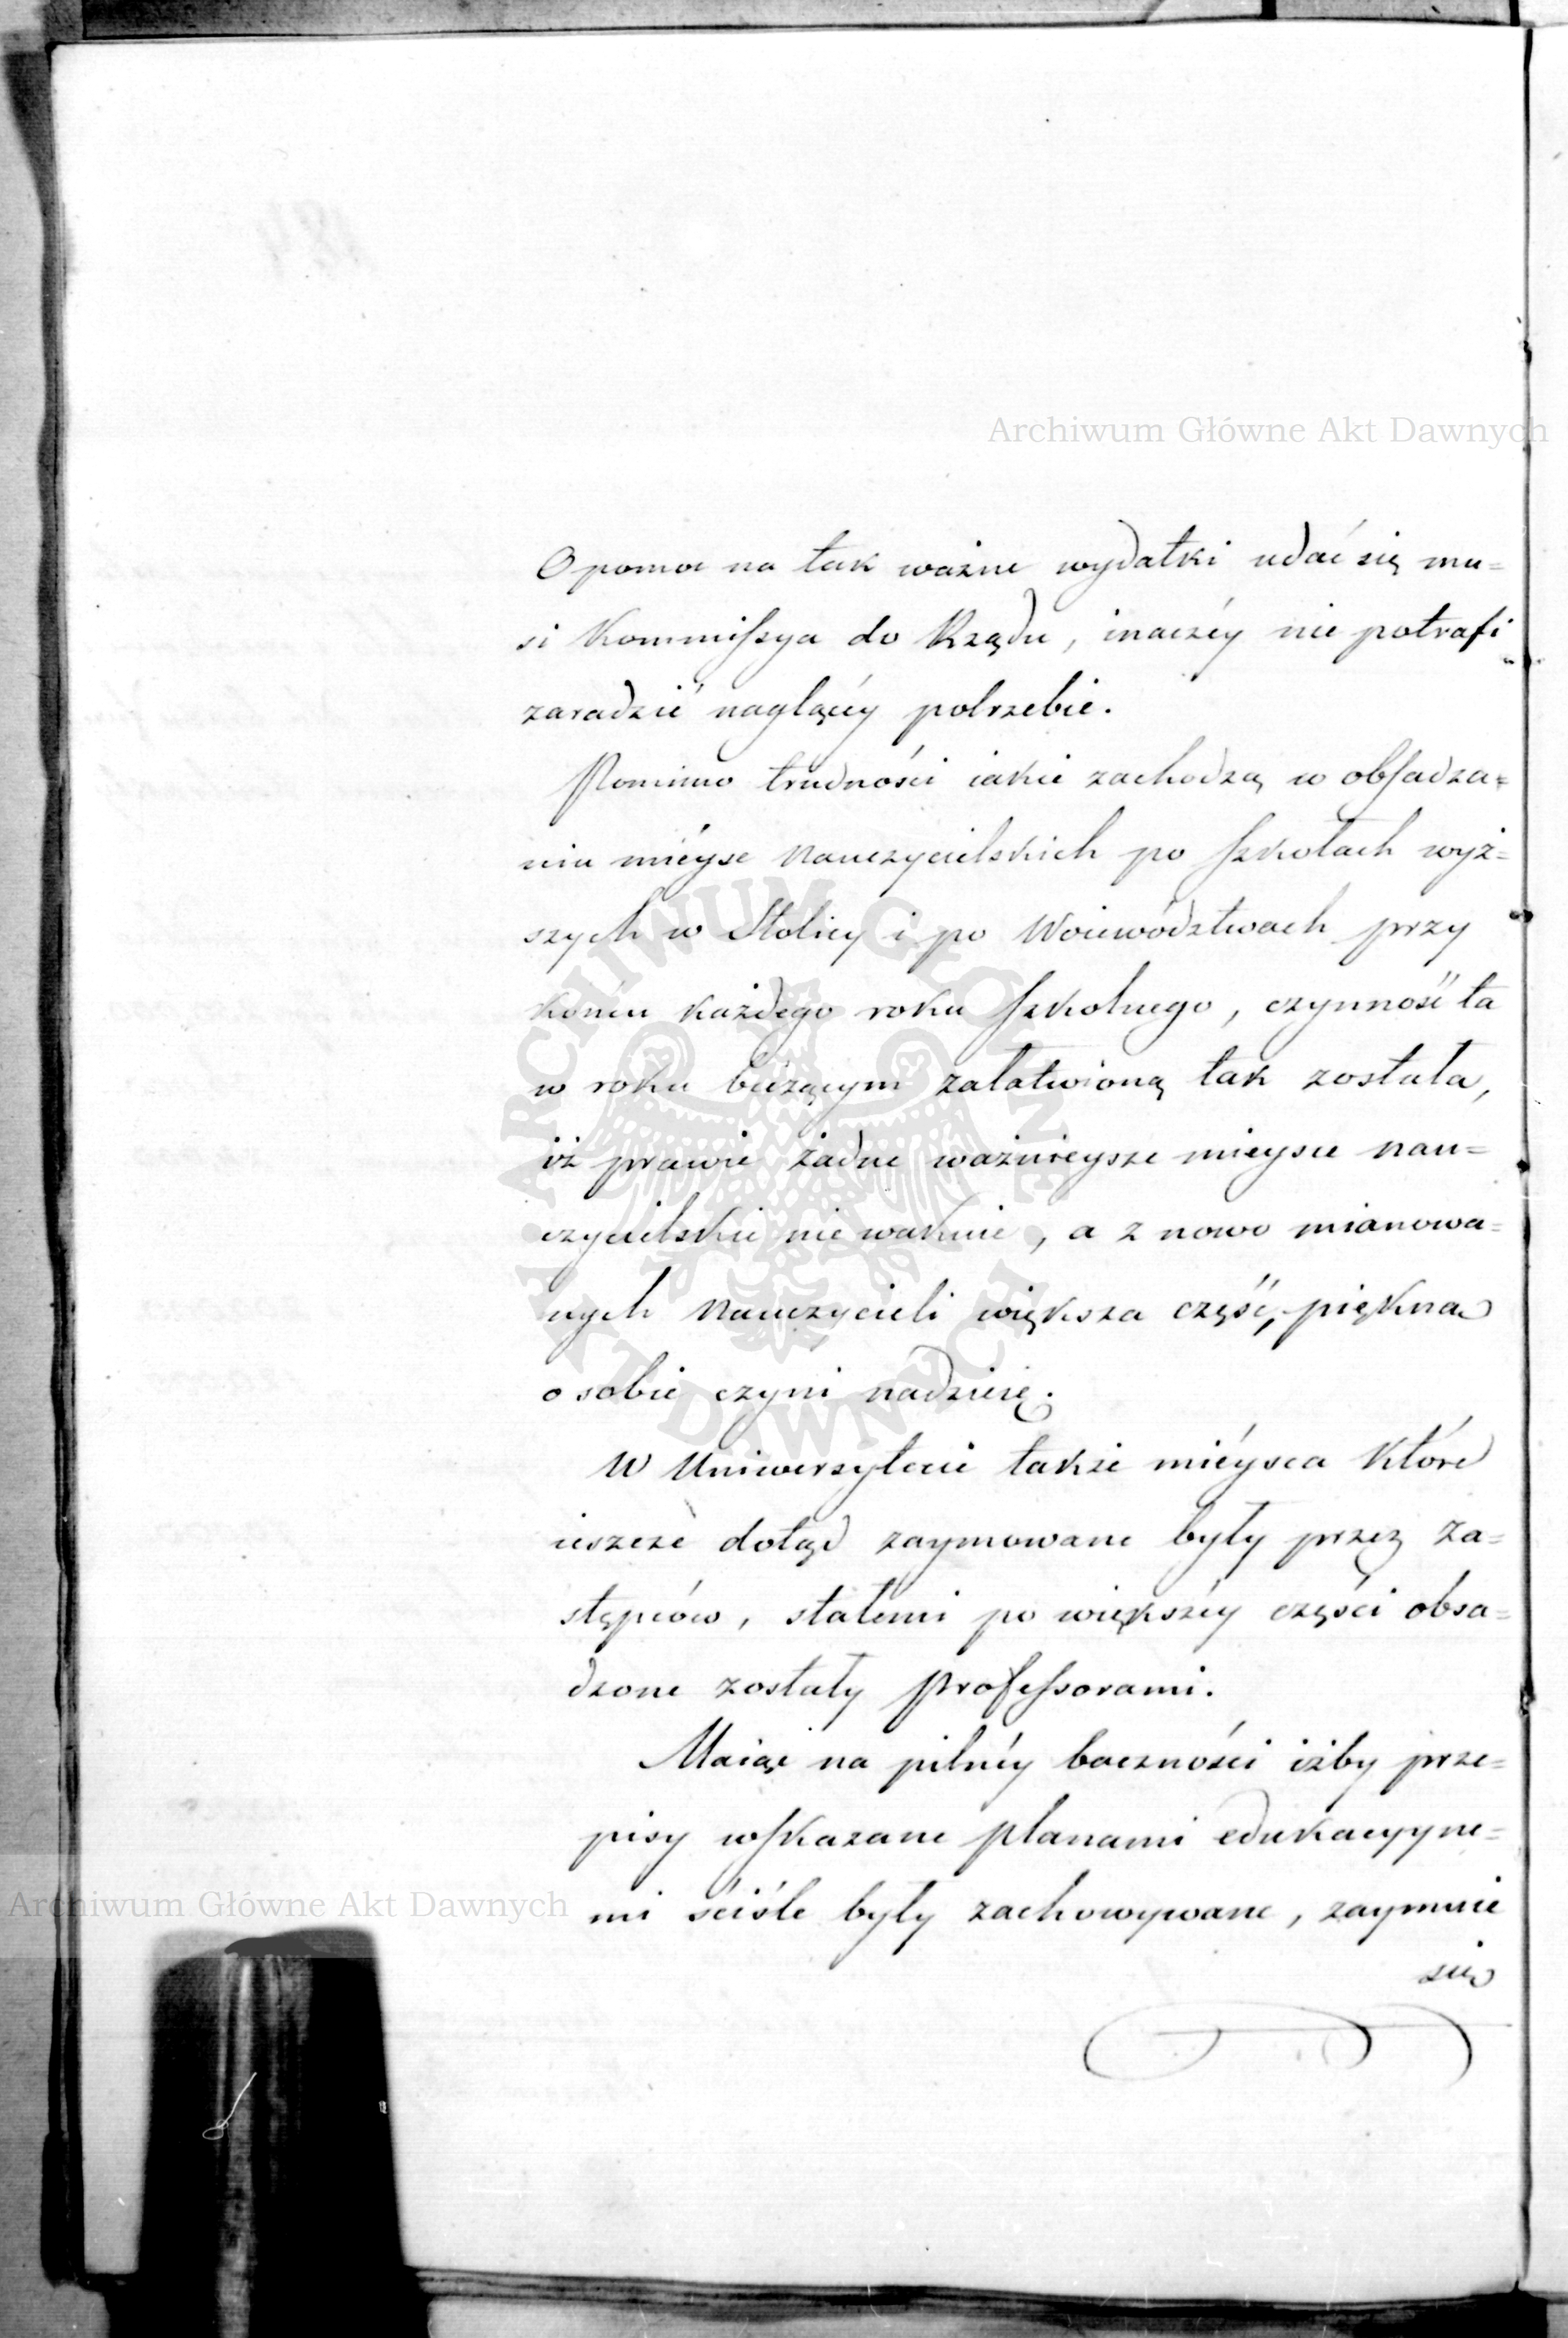 Archiwum Główne Akt Dawnych
O pomoc na tak ważne wydatki udać się mu=
si Kommissya do Rządu, inaczéy nie potrafi
zaradzić naglącéy potrzebie.
Pomimo trudności iakie zachodzą w obsadza=
niu mieysc Nauczycielskich po szkołach wyż=
szych w Stolicy i po Woiewództwach przy
końcu każdego roku szkolnego, czynność ta
w roku bieżącym załatwioną tak została,
iż prawie żadne ważnieysze mieysce nau=
czycielskie nie wakuie, a z nowo mianowa=
nych Nauczycieli większa część, piękna
o sobie czyni nadzieię.
W Uniwersytecie także mieysca które
ieszcze dotąd zaymowane były przez za=
stępców, stałemi po większéy części obsa=
dzone zostały Professorami.
Maiąc na pilnéy baczności iżby prze=
pisy wskazane planami edukacyyne=
mi ściśle były zachowywane, zaymuie
się
ARCHIWUM GŁÓWNE AKT DAWNYCH
Archiwum Główne Akt Dawnych